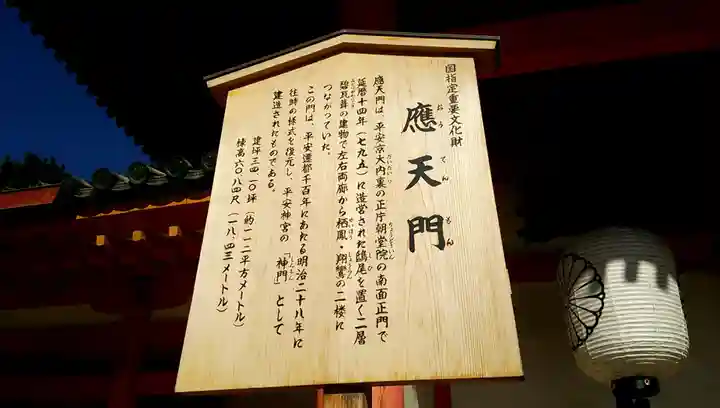 国指定重要文化財
應天門
おうてんもん
應天門は、平安京大内裏の正庁朝堂院の南面正門で
延暦十四年(七九五)に造営された鴟尾を置く二層
碧瓦葺の建物で左右両廊から栖鳳・翔鸞の二楼に
つながっていた。
この門は、平安遷都千百年にあたる明治二十八年に
往時の様式を復元し、平安神宮の「神門」として
建造されたものである。
建坪三四・一〇坪(約一一二平方メートル)
棟高六〇・八四尺(一八・四三メートル)